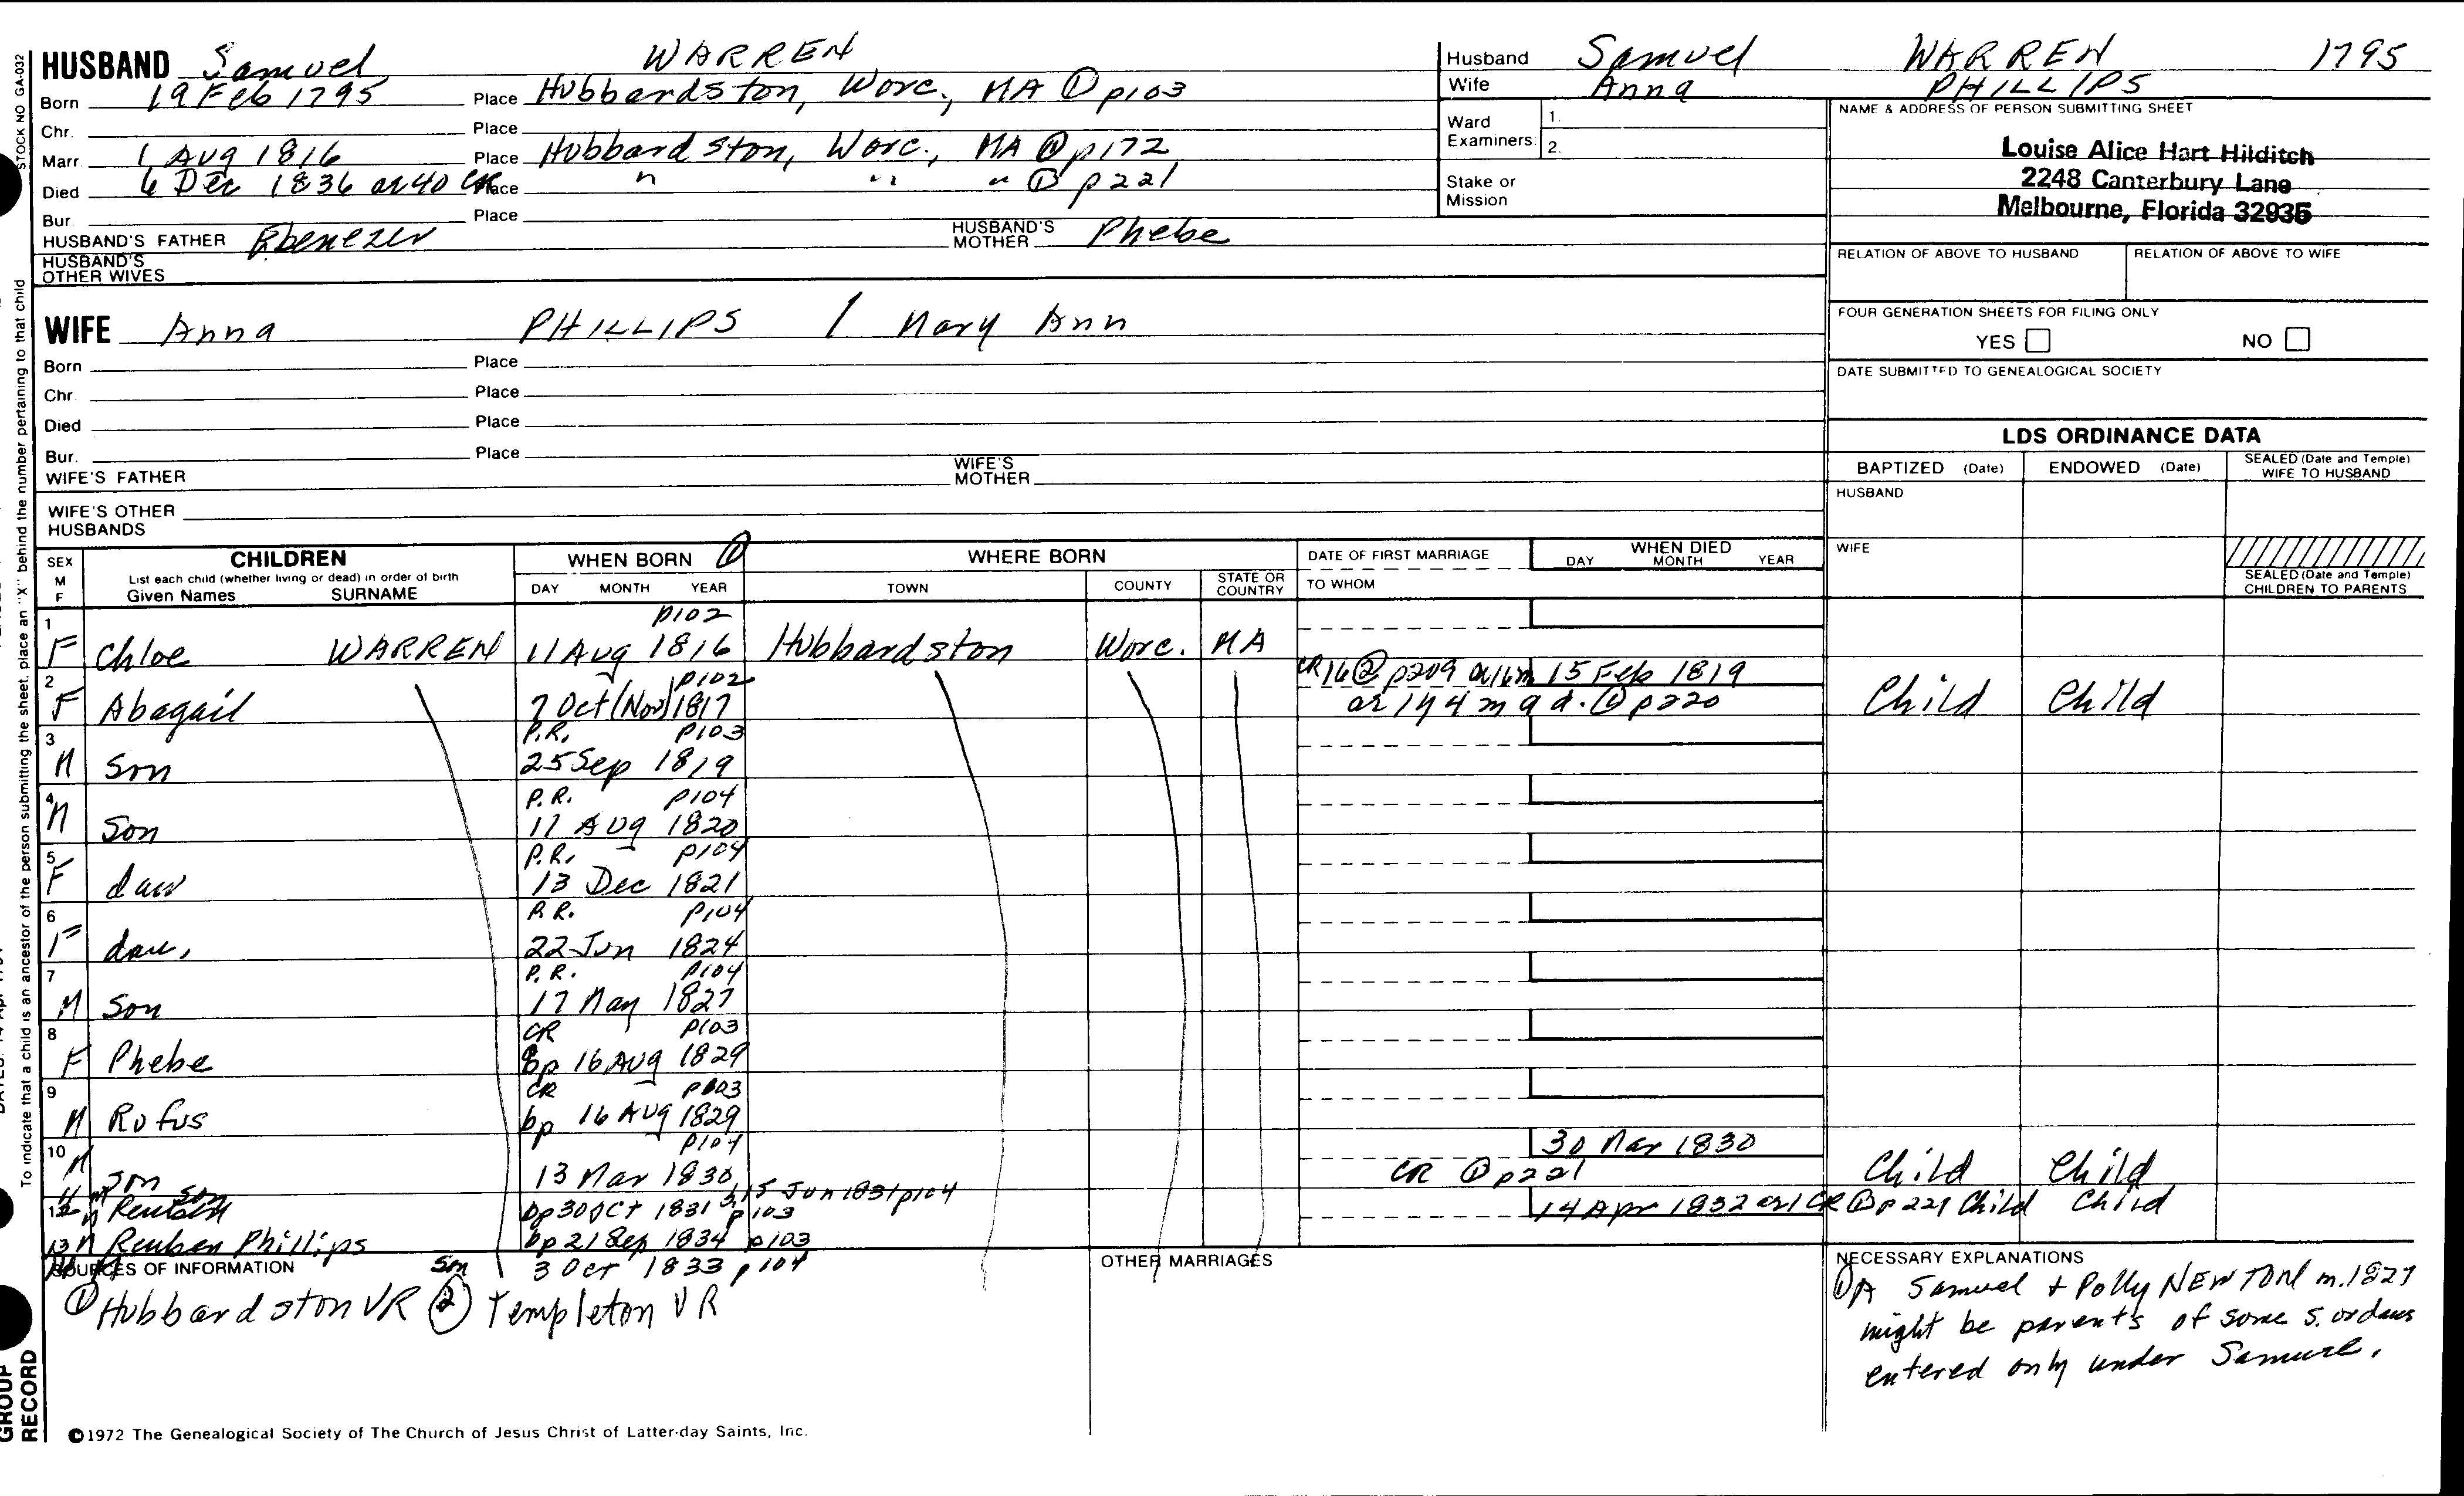 HUSBAND Samuel WARREN
Born 19 Feb 1795 Place Hubbardston, Worc., MA ① p103
Chr. Place
Marr. 1 Aug 1816 Place Hubbardston, Worc., MA ① p172
Died 6 Dec 1836 ae 40 CR Place " " " ① p221
Bur. Place
HUSBAND'S FATHER Ebenezer HUSBAND'S MOTHER Phebe
HUSBAND'S OTHER WIVES
WIFE Anna PHILLIPS / Mary Ann
Born Place
Chr. Place
Died Place
Bur. Place
WIFE'S FATHER WIFE'S MOTHER
WIFE'S OTHER HUSBANDS
Husband Samuel WARREN 1795
Wife Anna PHILLIPS
Ward Examiners: 1. 2.
Stake or Mission
NAME & ADDRESS OF PERSON SUBMITTING SHEET
Louise Alice Hart Hilditch
2248 Canterbury Lane
Melbourne, Florida 32935
RELATION OF ABOVE TO HUSBAND RELATION OF ABOVE TO WIFE
FOUR GENERATION SHEETS FOR FILING ONLY
YES NO
DATE SUBMITTED TO GENEALOGICAL SOCIETY
LDS ORDINANCE DATA
BAPTIZED (Date) ENDOWED (Date) SEALED (Date and Temple) WIFE TO HUSBAND
HUSBAND
WIFE
SEALED (Date and Temple) CHILDREN TO PARENTS
SEX M F CHILDREN WHEN BORN ① WHERE BORN DATE OF FIRST MARRIAGE WHEN DIED
List each child (whether living or dead) in order of birth
Given Names SURNAME DAY MONTH YEAR TOWN COUNTY STATE OR COUNTRY TO WHOM DAY MONTH YEAR
1 p102
F Chloe WARREN 11 Aug 1816 Hubbardston Worc. MA
2 p102 CR16 ② p209 ae 16m 15 Feb 1819
F Abagail 7 Oct (Nov) 1817 ae 1y 4m 9d. ① p220 Child Child
3 P.R. p103
M Son 25 Sep 1819
4 P.R. p104
M Son 11 Aug 1820
5 P.R. p104
F dau 13 Dec 1821
6 P.R. p104
F dau. 22 Jun 1824
7 P.R. p104
M Son 17 May 1827
8 CR p103
F Phebe bp 16 Aug 1829
9 CR p103
M Rufus bp 16 Aug 1829
10 p104 30 Mar 1830
M Son 13 Mar 1830 CR ① p221 Child Child
11 M son 15 Jun 1831 p104
12 M Reuben bp 30 Oct 1831 p103 14 Apr 1832 ae 1 CR ① p221 Child Child
13 M Reuben Phillips bp 21 Sep 1834 p103
Son 3 Oct 1833 p104
SOURCES OF INFORMATION
① Hubbardston VR ② Templeton VR
OTHER MARRIAGES
NECESSARY EXPLANATIONS
① A Samuel + Polly NEWTON m. 1827
might be parents of some s. or daus
entered only under Samuel.
©1972 The Genealogical Society of The Church of Jesus Christ of Latter-day Saints, Inc.
STOCK NO GA-032
To indicate that a child is an ancestor of the person submitting the sheet, place an "X" behind the number pertaining to that child
GROUP
RECORD